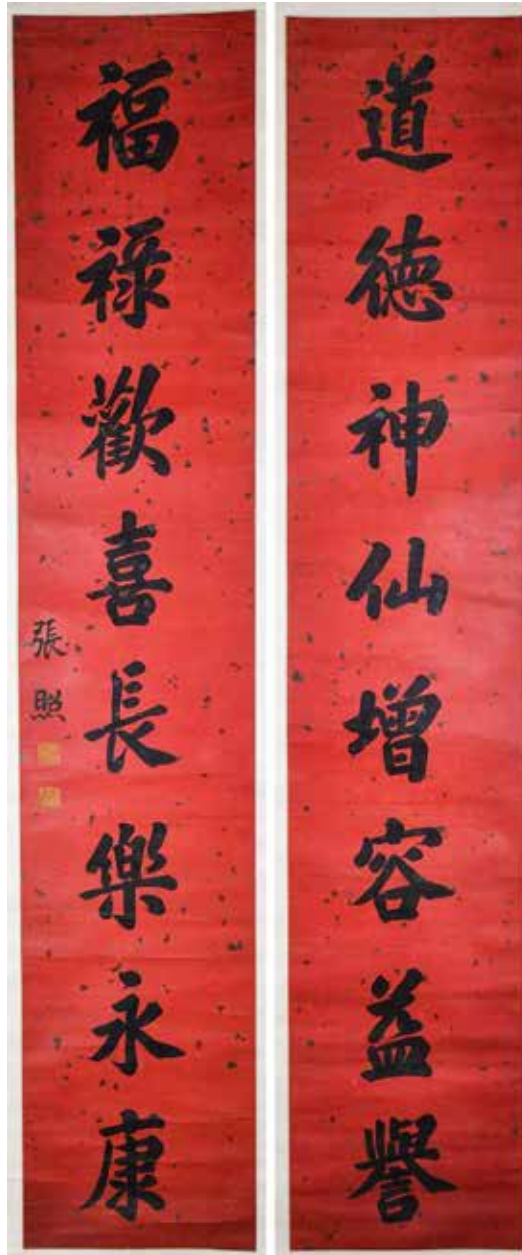 道德神仙增容益譽
福祿歡喜長樂永康
張照